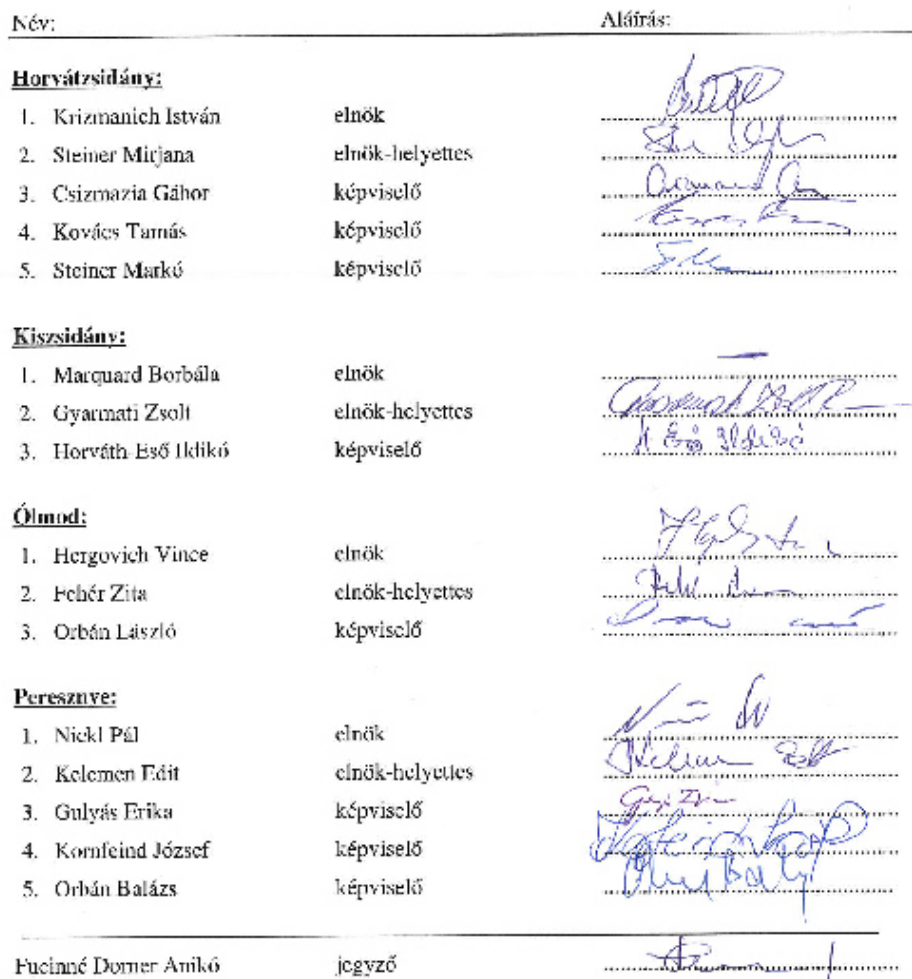 Név: Aláírás:
Horvátzsidány:
1. Krizmanich István elnök
2. Steiner Mirjana elnök-helyettes
3. Csizmazia Gábor képviselő
4. Kovács Tamás képviselő
5. Steiner Markó képviselő
Kiszsidány:
1. Marquard Borbála elnök
2. Gyarmati Zsolt elnök-helyettes
3. Horváth-Eső Ildikó képviselő H Eső Ildikó
Ólmod:
1. Hergovich Vince elnök
2. Fehér Zita elnök-helyettes
3. Orbán László képviselő
Peresznye:
1. Nickl Pál elnök
2. Kelemen Edit elnök-helyettes
3. Gulyás Erika képviselő
4. Kornfeind József képviselő
5. Orbán Balázs képviselő
Fucinné Dorner Anikó jegyző